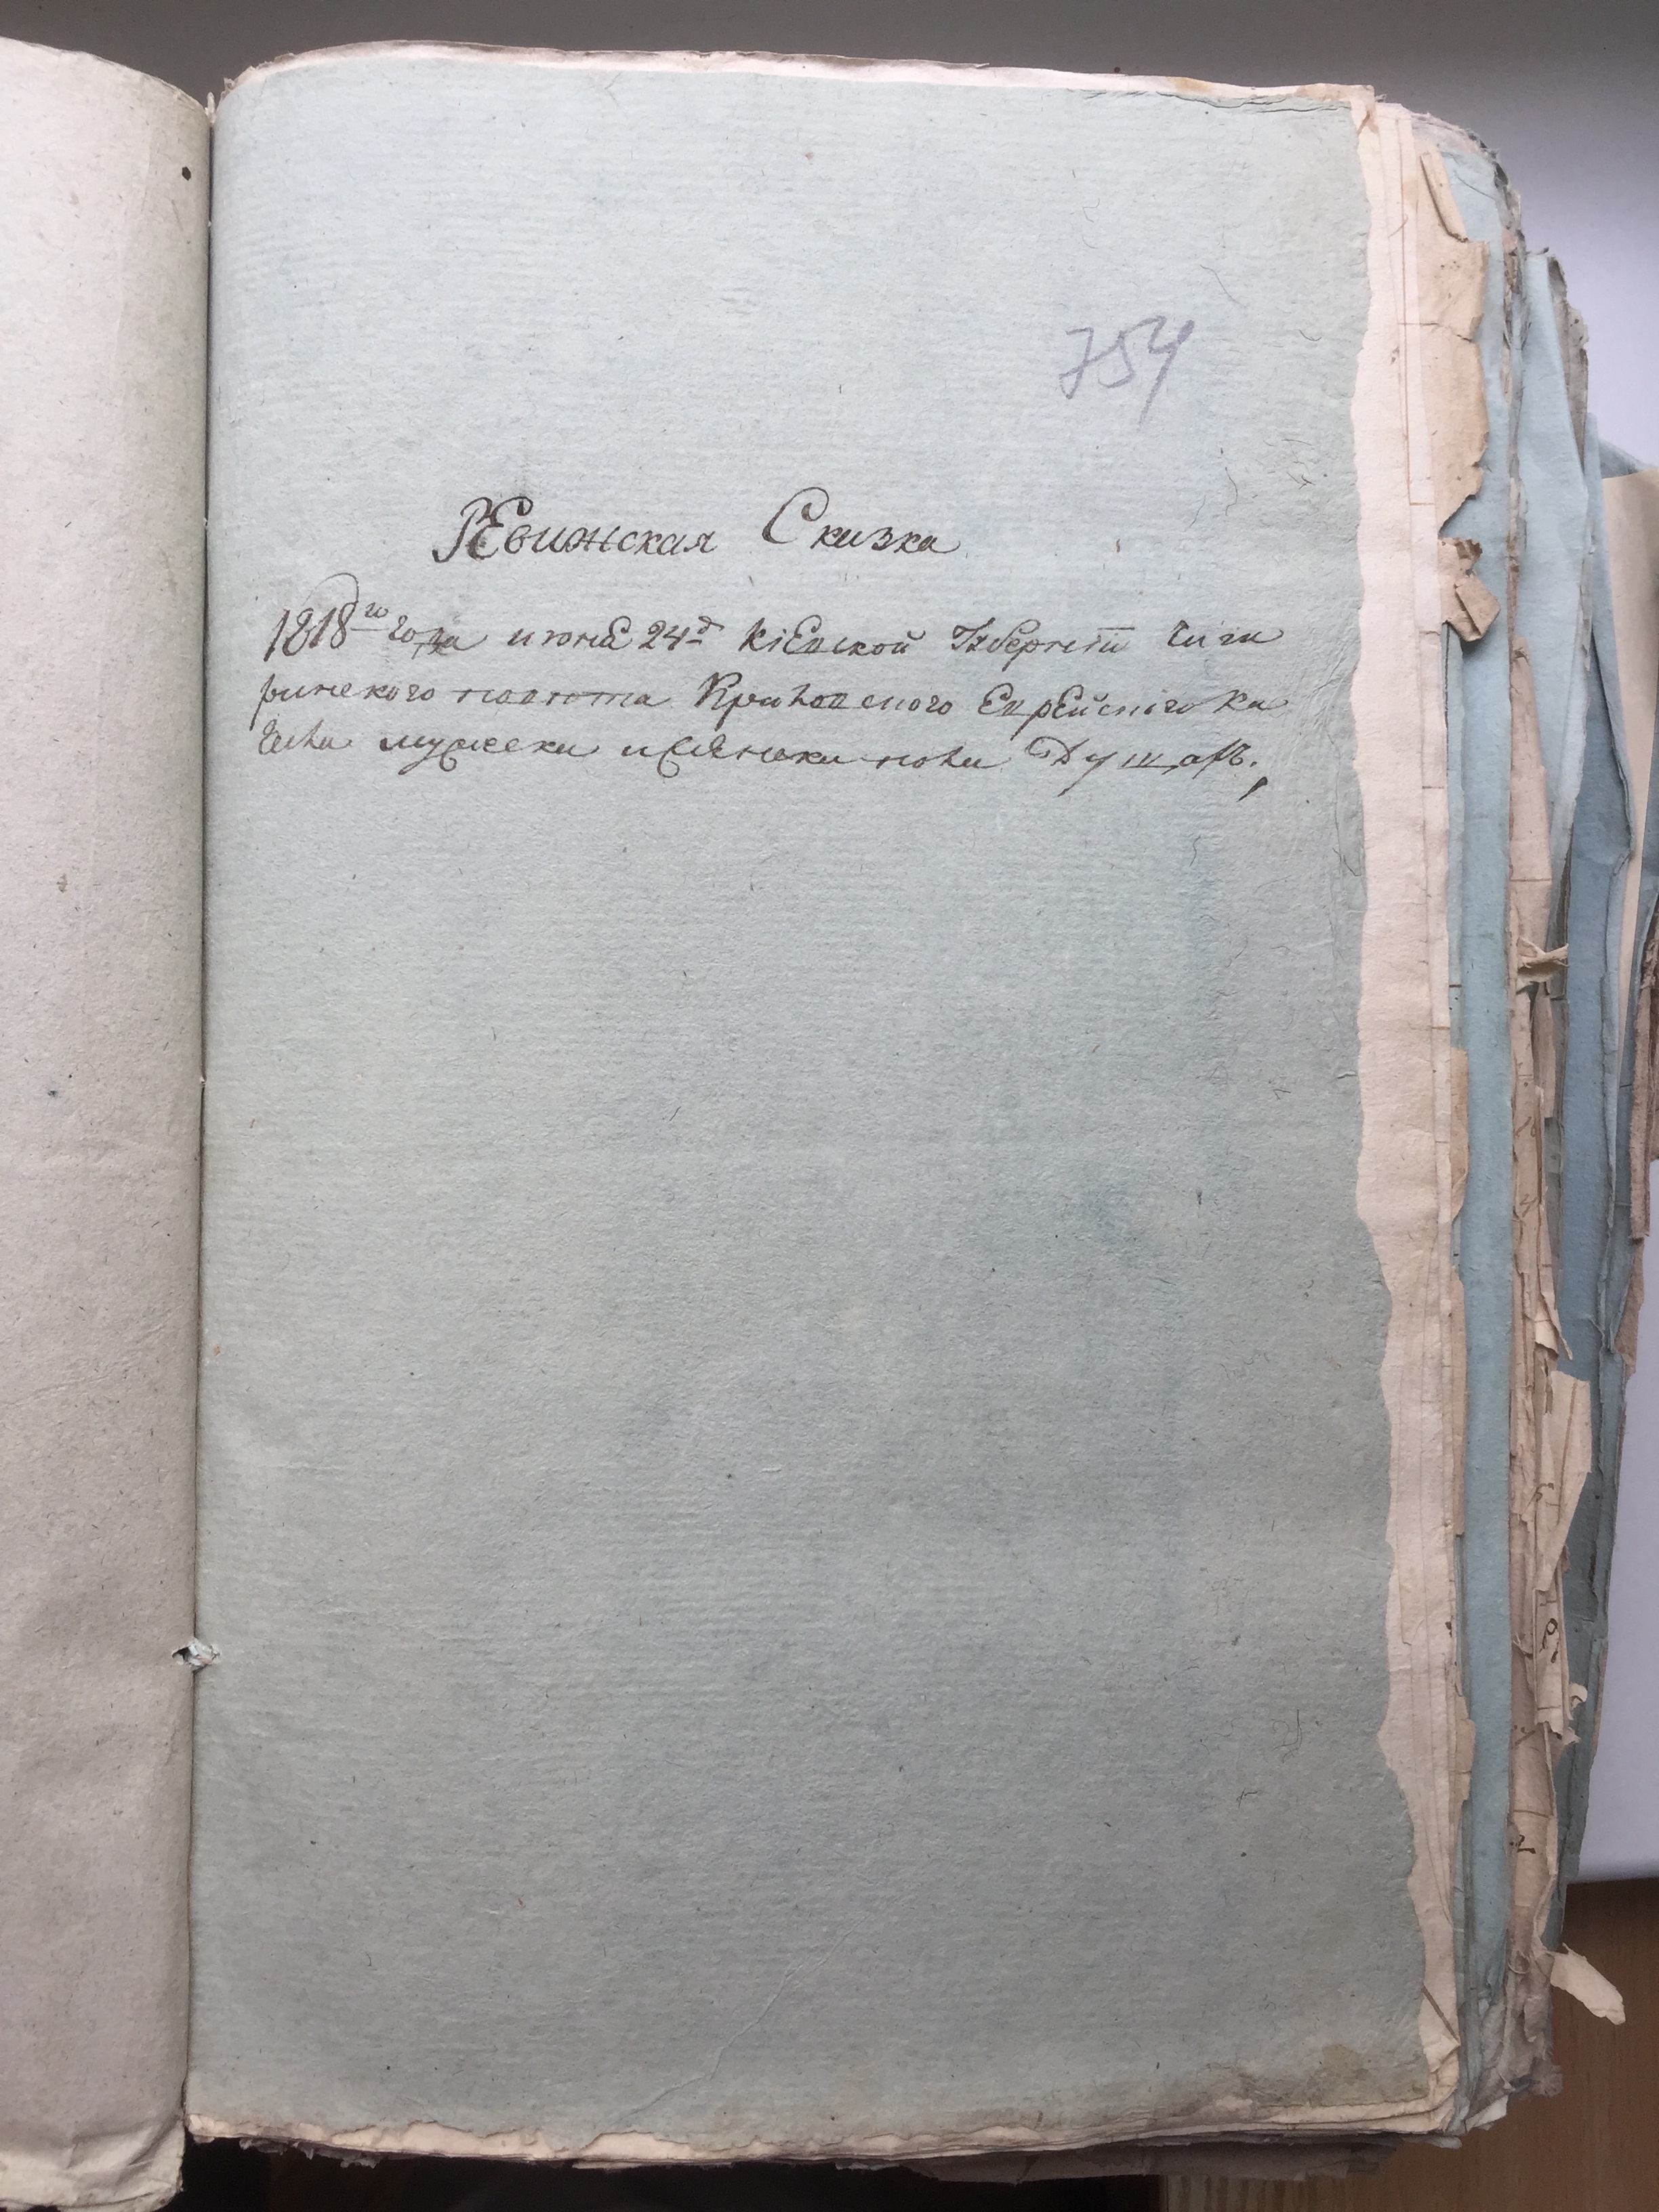 754
РЕвижская Скизка
1818го года июнЕ 24д КіЕвской Губернти Чиги
ринского повюта Криловского ЕврЕйского Ка
Гала мужески и женски пола Душахъ.